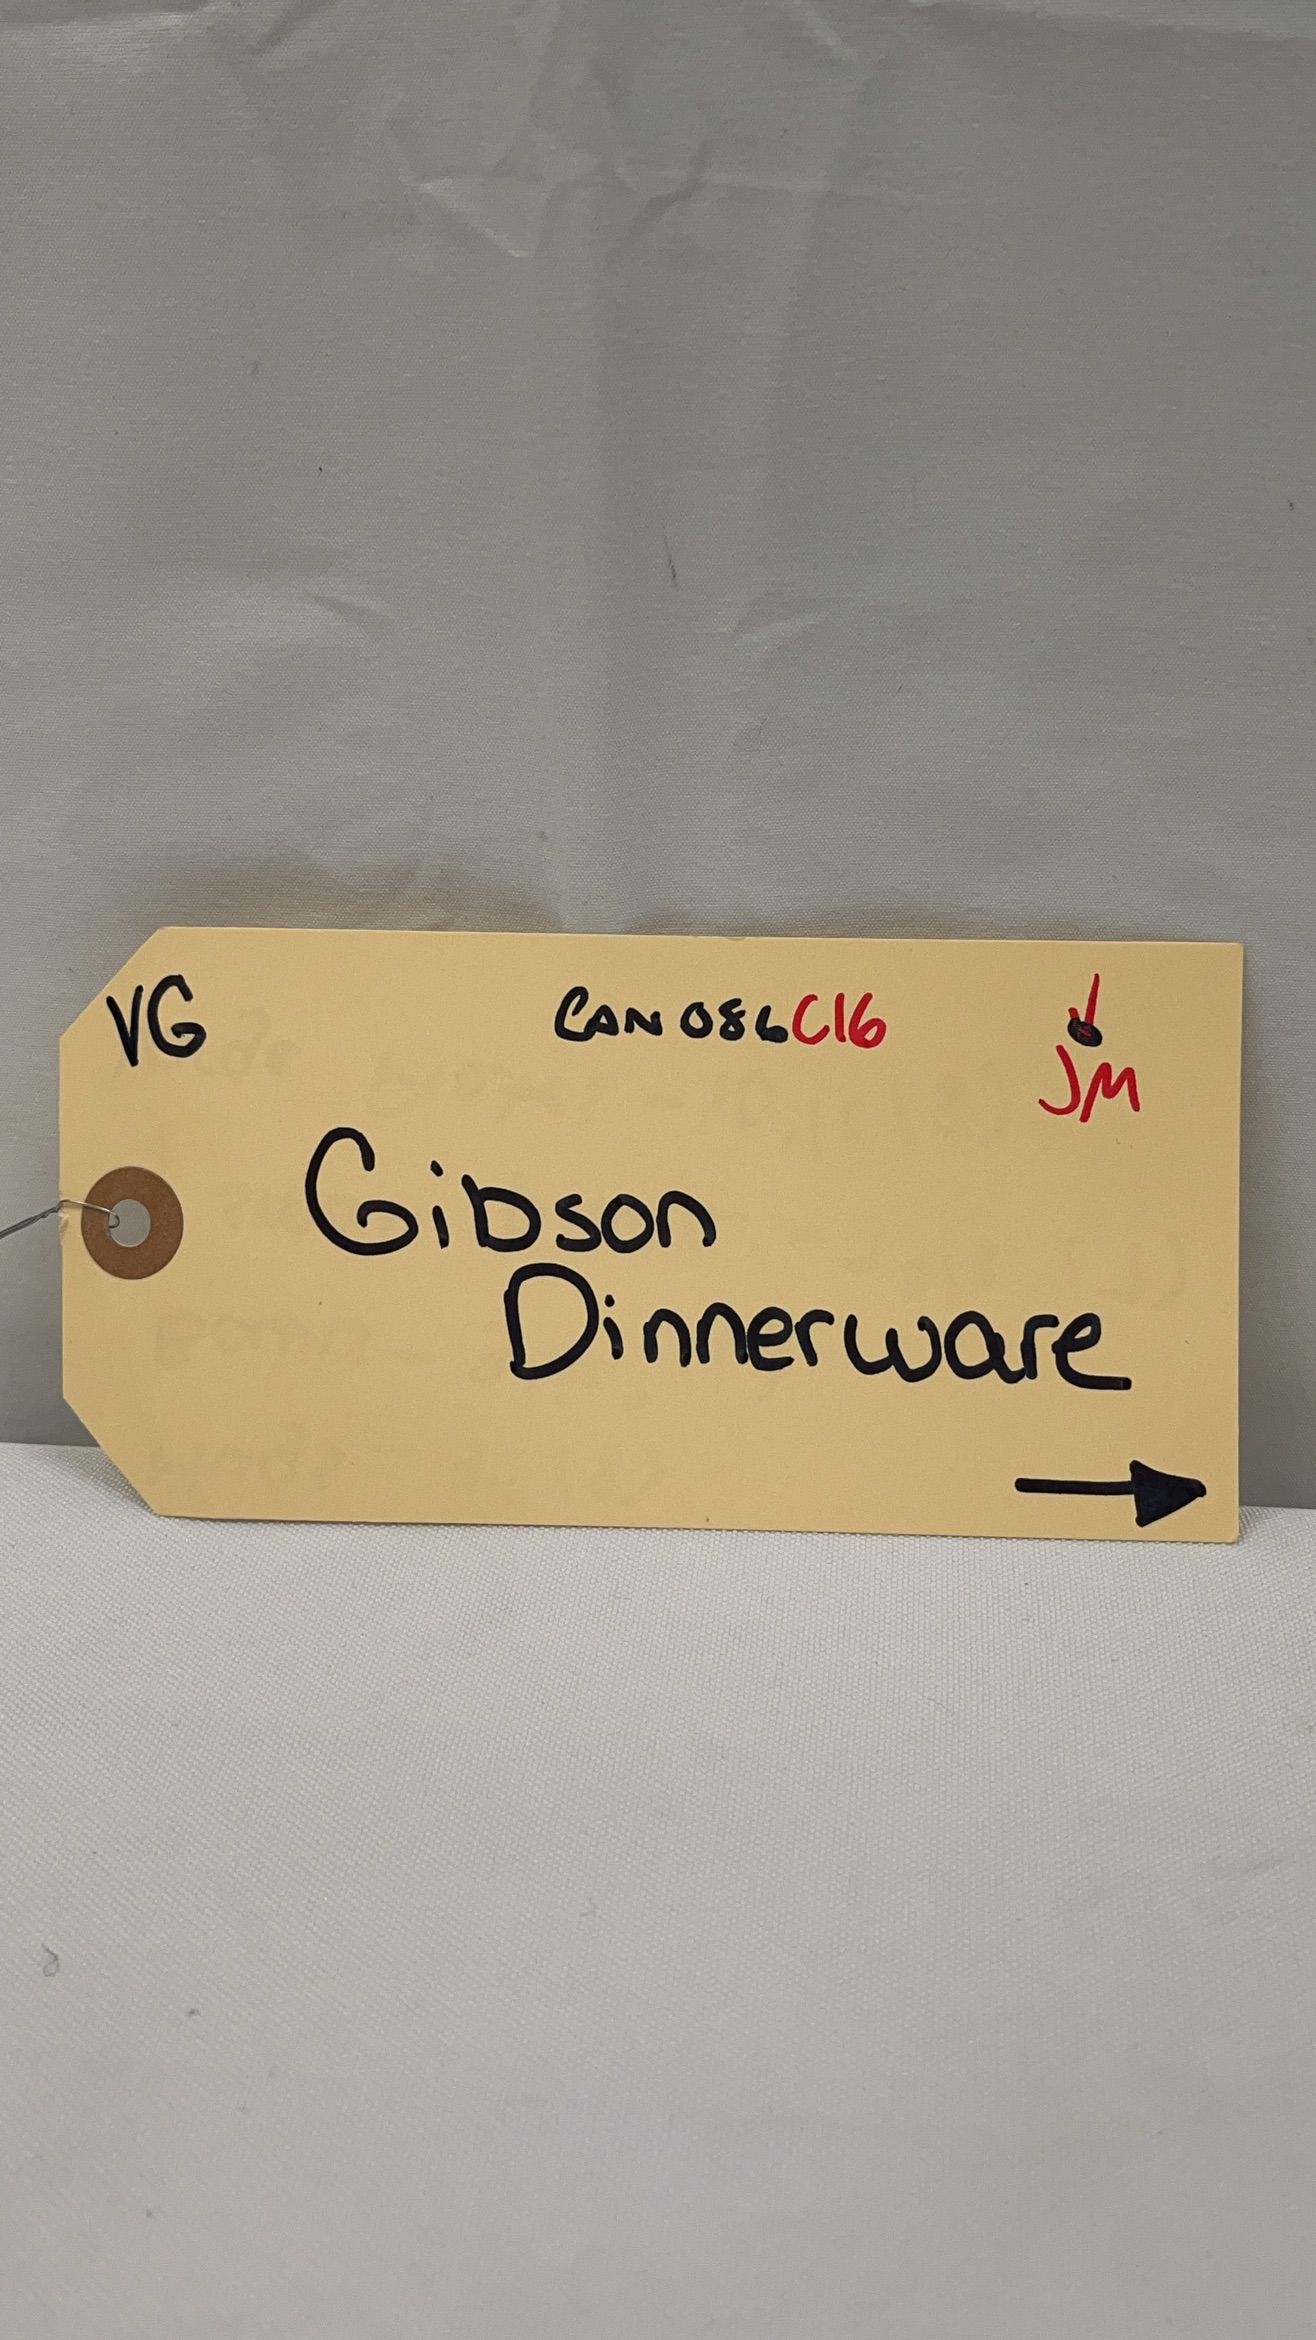 VG CAN086C16
JM
Gibson
Dinnerware